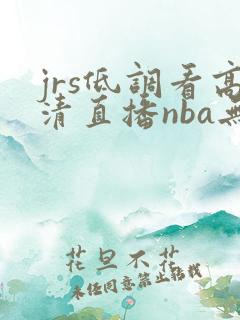 jrs低調看高
清直播nba無
花旦不花
未经同意禁止转载